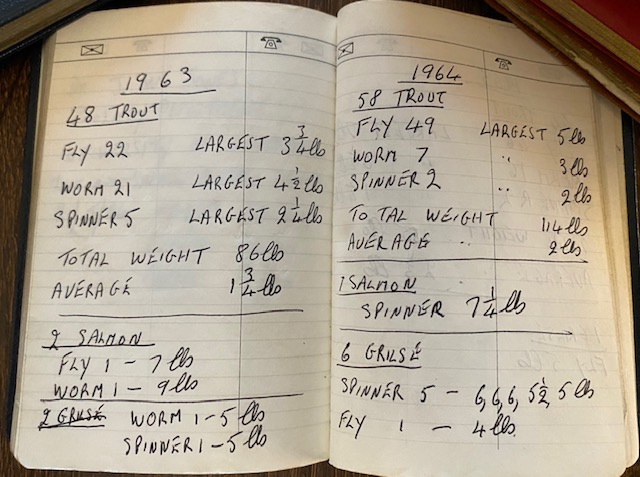 1963
48 TROUT
FLY 22 LARGEST 3 3/4 lbs
WORM 21 LARGEST 4 1/2 lbs
SPINNER 5 LARGEST 2 1/4 lbs
TOTAL WEIGHT 86 lbs
AVERAGE 1 3/4 lbs
2 SALMON
FLY 1 - 7 lbs
WORM 1 - 9 lbs
2 GRILSE WORM 1 - 5 lbs
SPINNER 1 - 5 lbs
1964
58 TROUT
FLY 49 LARGEST 5 lbs
WORM 7 " 3 lbs
SPINNER 2 " 2 lbs
TOTAL WEIGHT 114 lbs
AVERAGE " 2 lbs
1 SALMON
SPINNER 7 1/4 lbs
6 GRILSE
SPINNER 5 - 6, 6, 6, 5 1/2, 5 lbs
FLY 1 - 4 lbs.